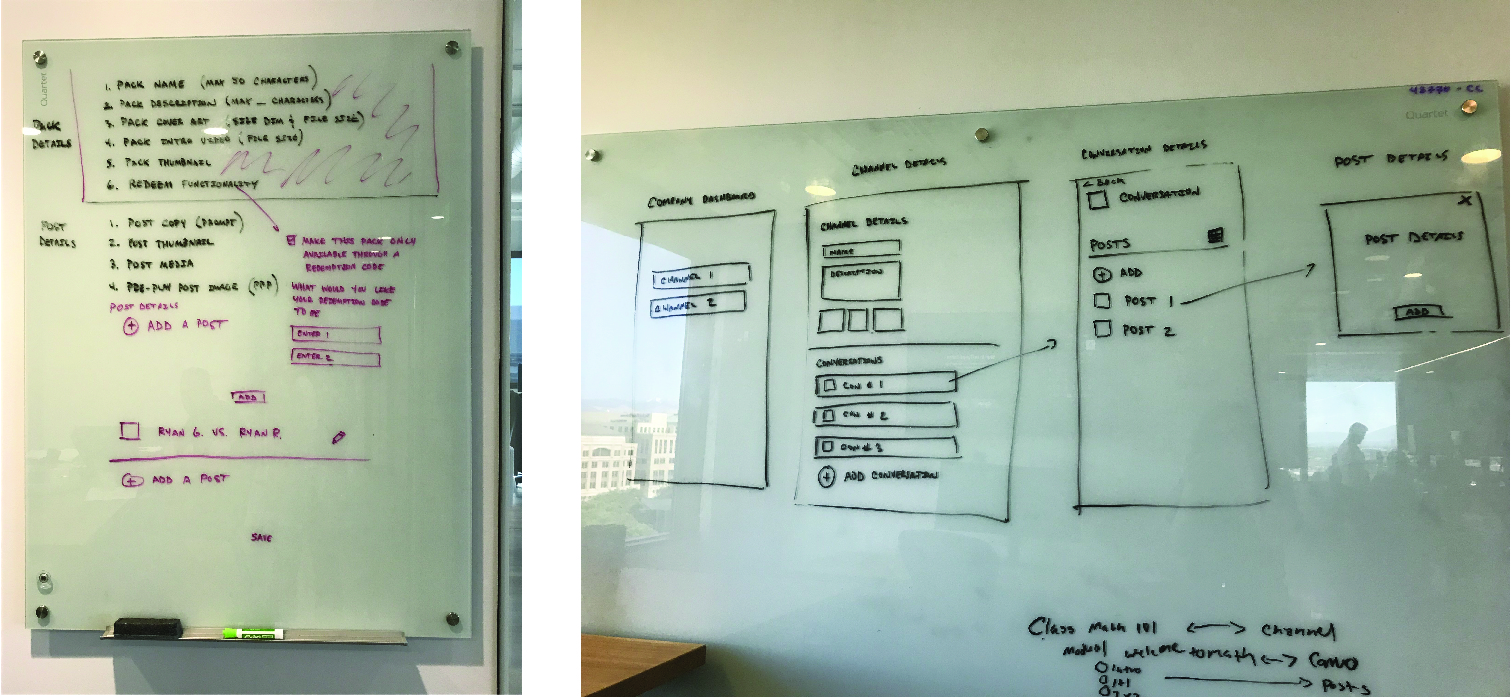 Quartet
PACK DETAILS
1. PACK NAME (MAX 50 CHARACTERS)
2. PACK DESCRIPTION (MAX _ CHARACTERS)
3. PACK COVER ART (SIZE DIM & FILE SIZE)
4. PACK INTRO VIDEO (FILE SIZE)
5. PACK THUMBNAIL
6. REDEEM FUNCTIONALITY
POST DETAILS
1. POST COPY (PROMPT)
2. POST THUMBNAIL
3. POST MEDIA
4. PRE-PLAY POST IMAGE (PPP)
POST DETAILS
+ ADD A POST
MAKE THIS PACK ONLY
AVAILABLE THROUGH A
REDEMPTION CODE
WHAT WOULD YOU LIKE
YOUR REDEMPTION CODE
TO BE
ENTER 1
ENTER 2
ADD
RYAN G. VS. RYAN P.
+ ADD A POST
SAVE
Quartet
COMPANY DASHBOARD
CHANNEL 1
CHANNEL 2
CHANNEL DETAILS
CHANNEL DETAILS
NAME
DESCRIPTION
CONVERSATIONS
CON # 1
CON # 2
CON # 3
+ ADD CONVERSATION
CONVERSATION DETAILS
< BACK
CONVERSATION
POSTS
+ ADD
POST 1
POST 2
POST DETAILS
X
POST DETAILS
ADD
Class Math 101 <-> Channel
Modual welcome to math <-> Convo
Intro
1+1
Posts